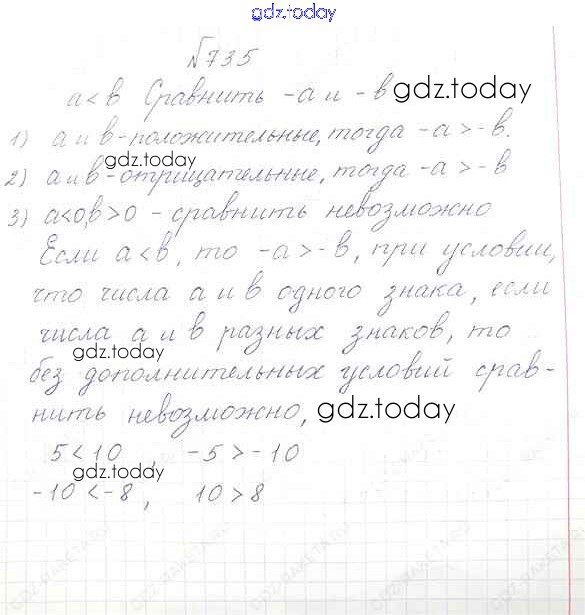 gdz.today
№735
a < b Сравнить -a и -b gdz.today
1) a и b - положительные, тогда -a > -b.
gdz.today
2) a и b - отрицательные, тогда -a > -b
3) a<0, b>0 - сравнить невозможно
Если a < b, то -a > -b, при условии,
что числа a и b одного знака, если
числа a и b разных знаков, то
gdz.today
без дополнительных условий срав-
нить невозможно, gdz.today
5 < 10 , -5 > -10
gdz.today
-10 < -8 , 10 > 8